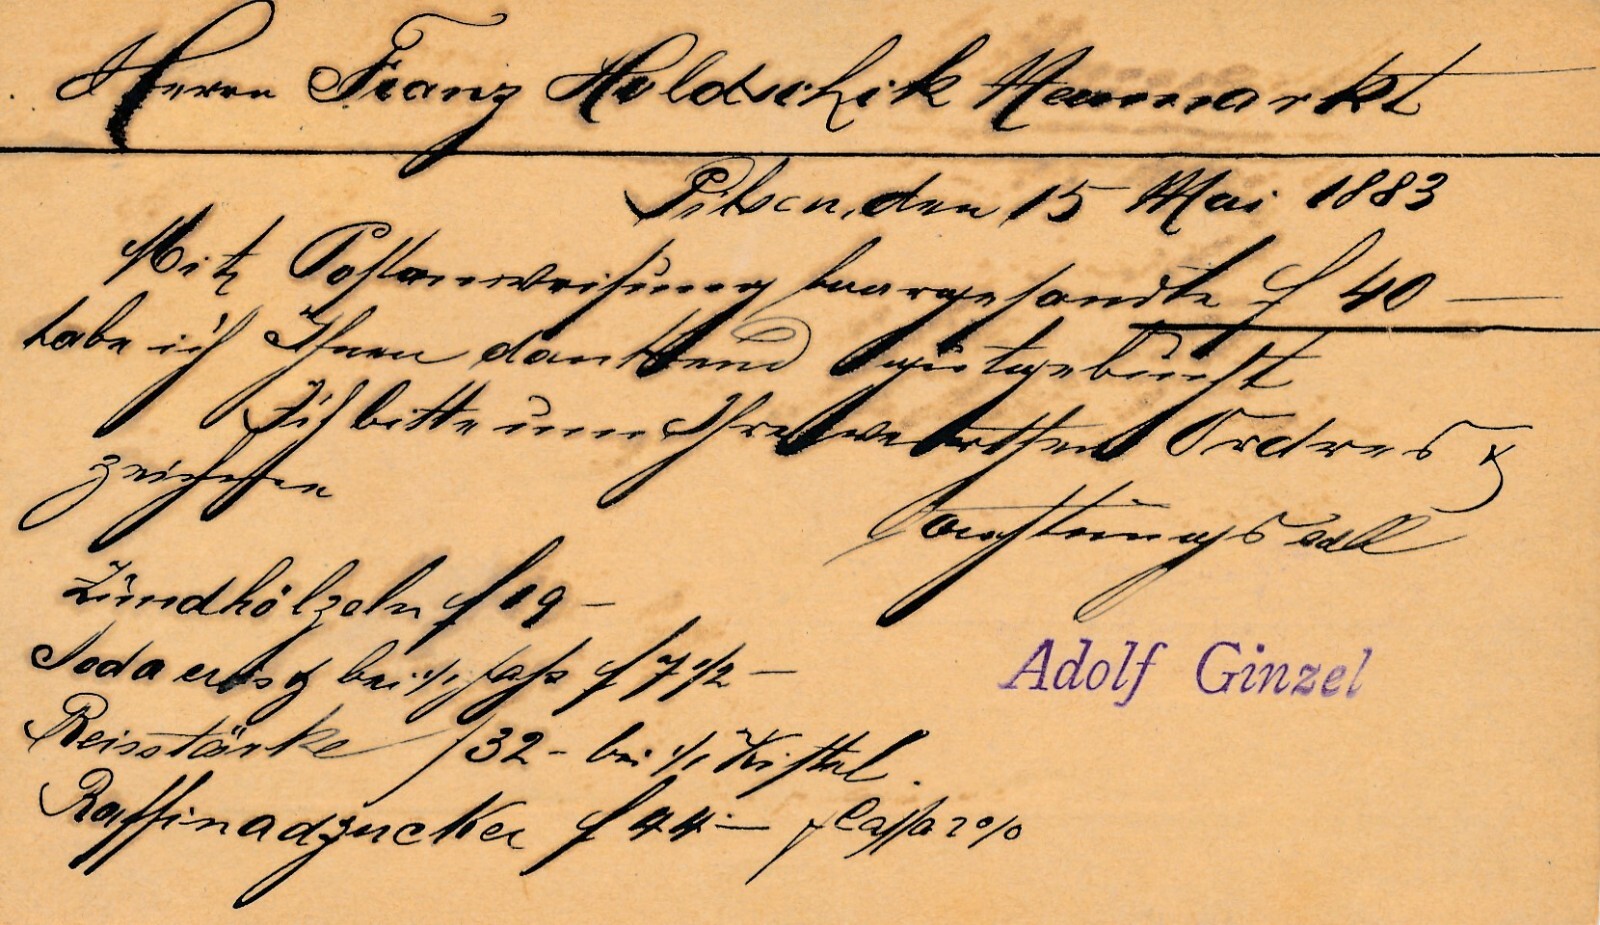 Herrn Franz Holdschik Neumarkt
Pilsen, den 15 Mai 1883
Mitz Postanweisung baargesandte f 40 —
habe ich Ihnen dankend gutgebucht
Ich bitte um Ihre werthen Ordres &
zeichne
achtungsvoll
Zündhölzeln f 19 —
Soda bei 1/1 Fass f 7 1/2 —
Reisstärke f 32 - bei 1/1 Kistel.
Raffinadzucker f 44 — Cassa 2%
Adolf Ginzel